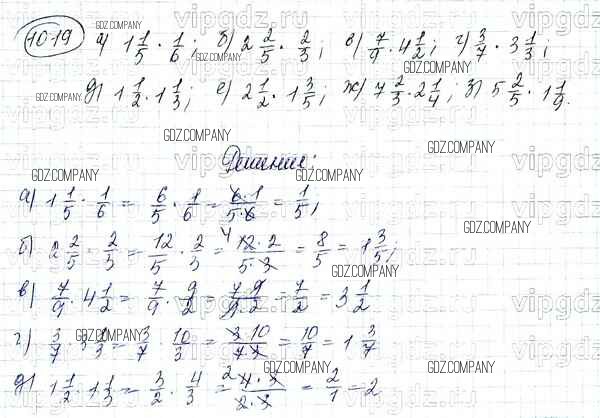 1019 а) 1 1/5 · 1/6; б) 2 2/5 · 2/3; в) 7/9 · 4 1/2; г) 3/7 · 3 1/3;
д) 1 1/2 · 1 1/3; е) 2 1/2 · 1 3/5; ж) 7 2/3 · 2 1/4; з) 5 2/5 · 1 1/9.
Решение:
а) 1 1/5 · 1/6 = 6/5 · 1/6 = 6·1/5·6 = 1/5;
б) 2 2/5 · 2/3 = 12/5 · 2/3 = 4 12·2/5·3 = 8/5 = 1 3/5;
в) 7/9 · 4 1/2 = 7/9 · 9/2 = 7·9/9·2 = 7/2 = 3 1/2
г) 3/7 · 3 1/3 = 3/7 · 10/3 = 3·10/7·3 = 10/7 = 1 3/7
д) 1 1/2 · 1 1/3 = 3/2 · 4/3 = 2 4·3/2·3 = 2/1 = 2
GDZ.COMPANY
vipgdz.ru